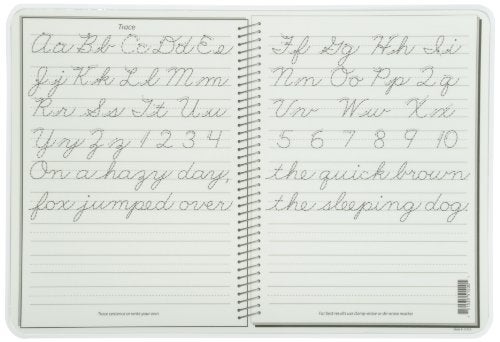 Trace
Aa Bb Cc Dd Ee Ff Gg Hh Ii
Jj Kk Ll Mm Nn Oo Pp Qq
Rr Ss Tt Uu Vv Ww Xx
Yy Zz 1 2 3 4 5 6 7 8 9 10
On a hazy day, the quick brown
fox jumped over the sleeping dog.
Trace sentence or write your own.
For best results use damp-erase or dri-erase marker